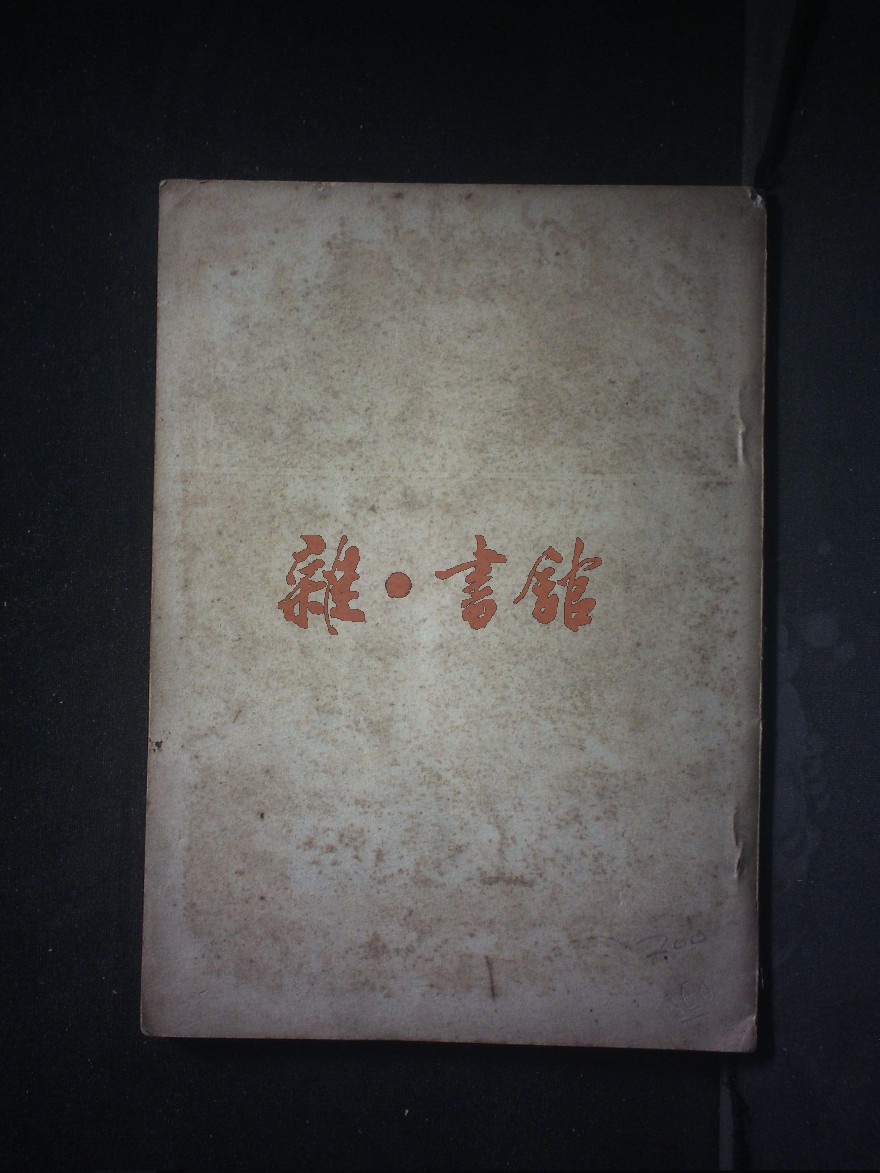 雜·書館
200